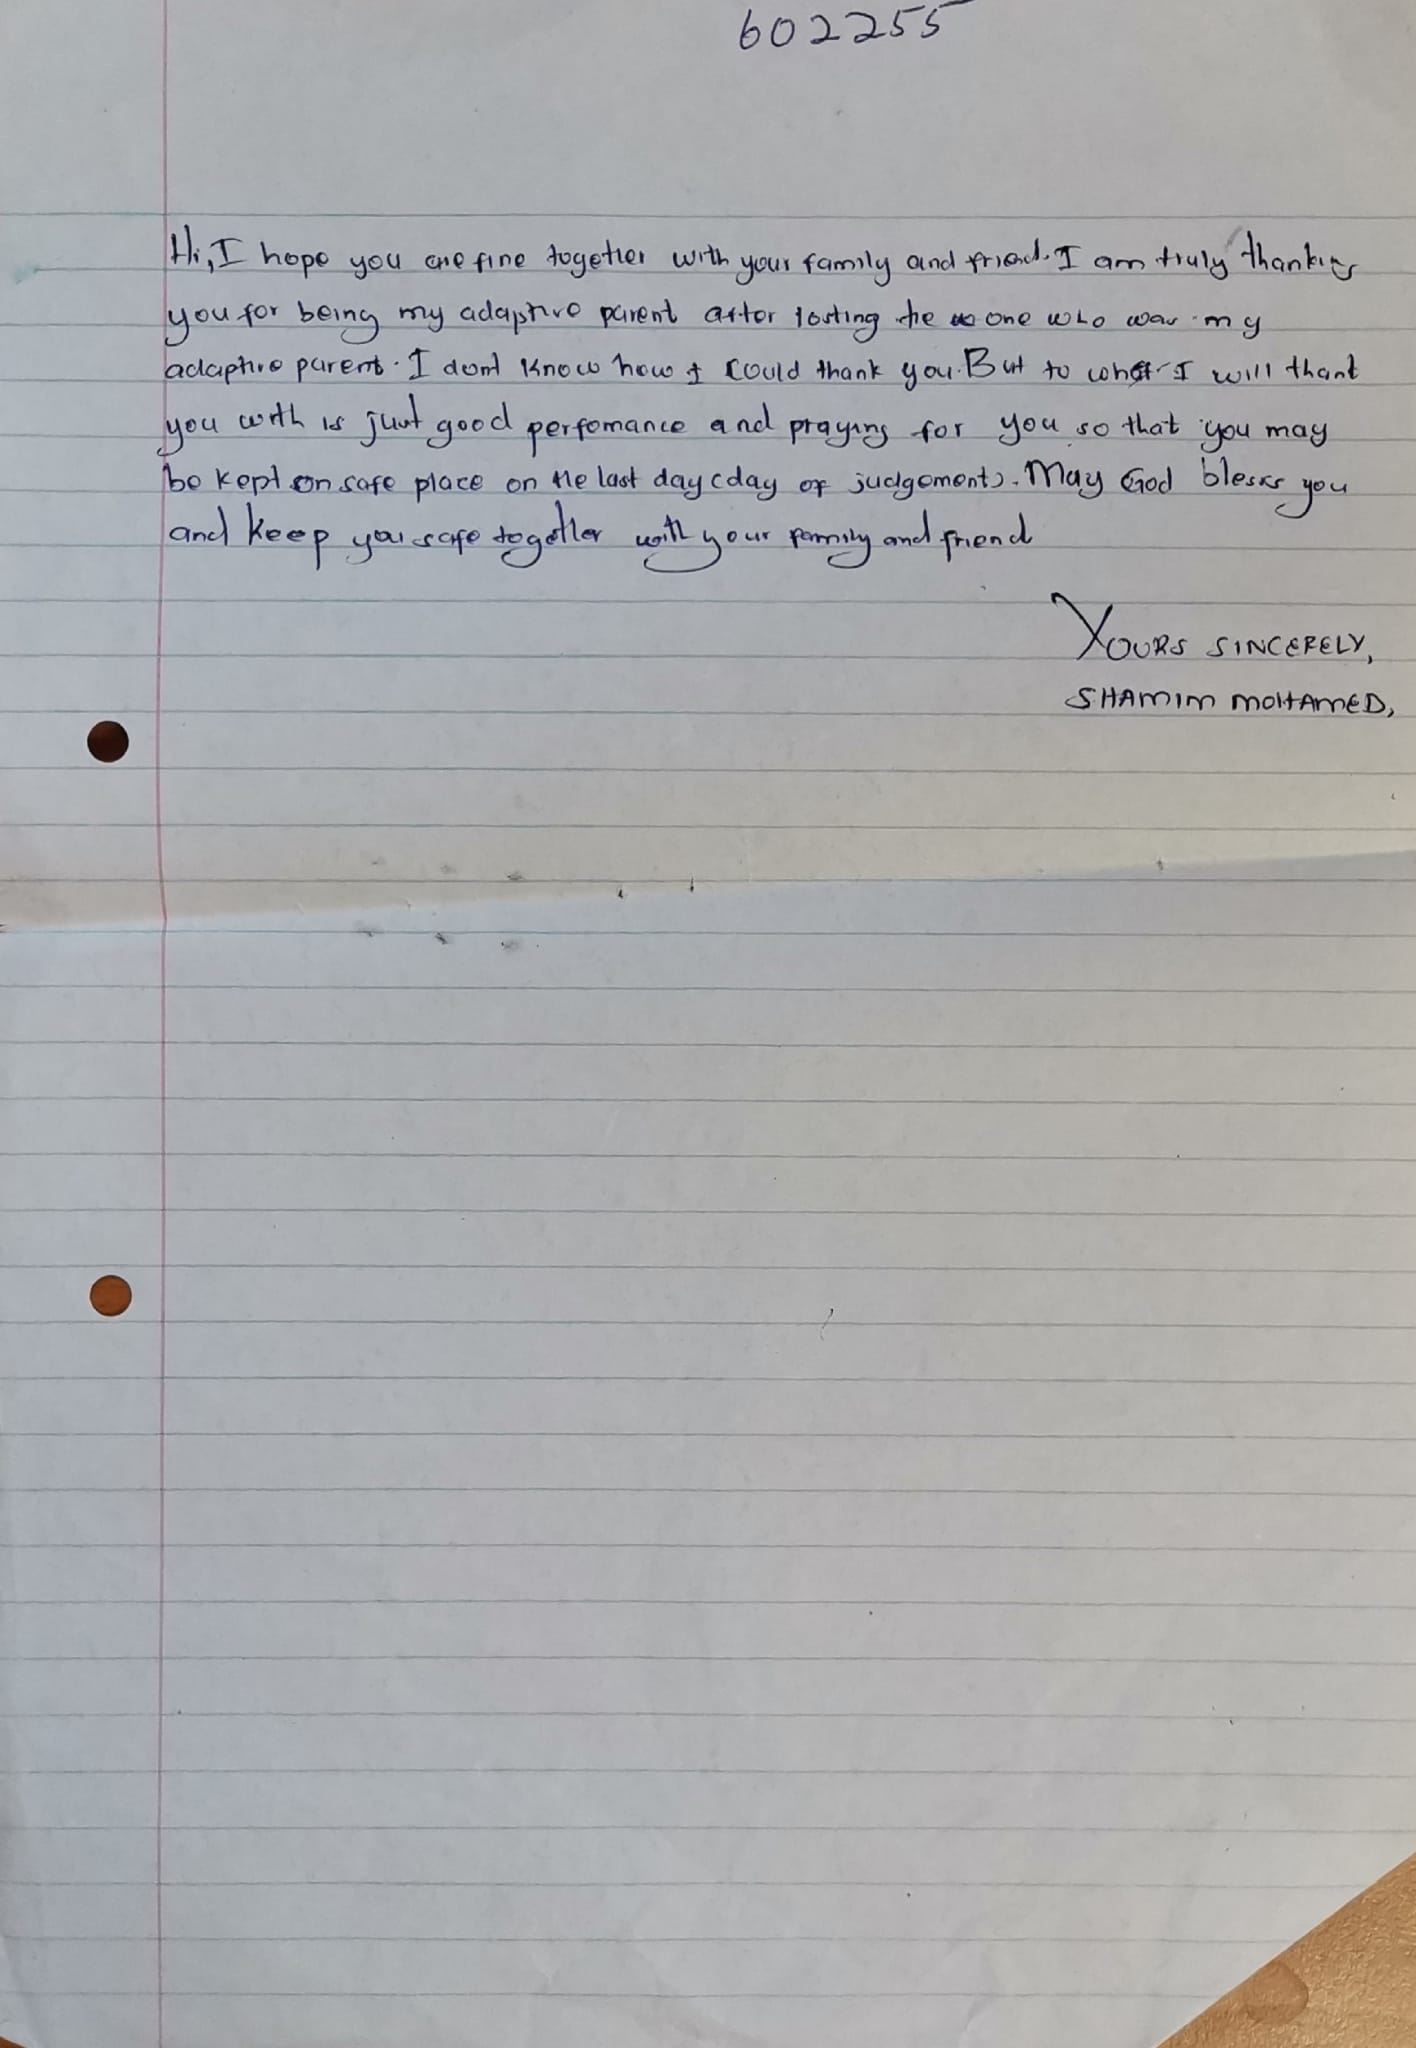 602255
Hi, I hope you are fine together with your family and friend. I am truly thanking
you for being my adaptive parent after losting the one who was my
adaptive parent. I dont know how I could thank you. But to what I will thank
you with is just good perfomance and praying for you so that you may
be kept on safe place on the last day (day of judgement). May God bless you
and keep you safe together with your family and friend
YOURS SINCERELY,
SHAMIM MOHAMED,